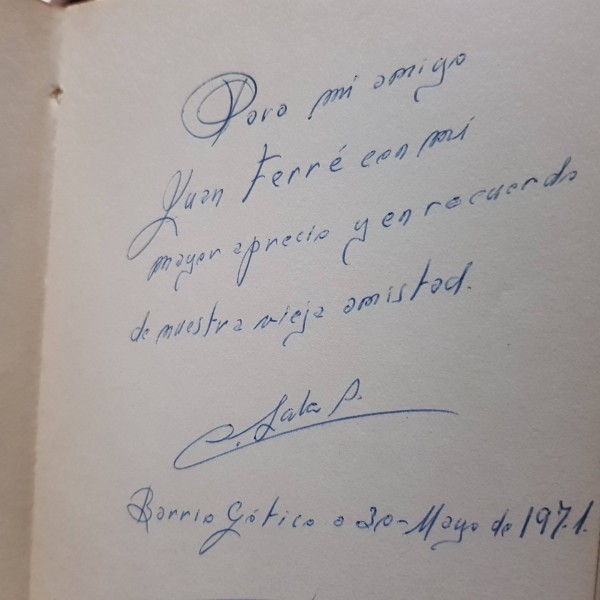 Para mi amigo
Juan Ferré con mi
mayor aprecio y en recuerdo
de nuestra vieja amistad.
C. Sala P.
Barrio Gótico a 30-Mayo de 1971.